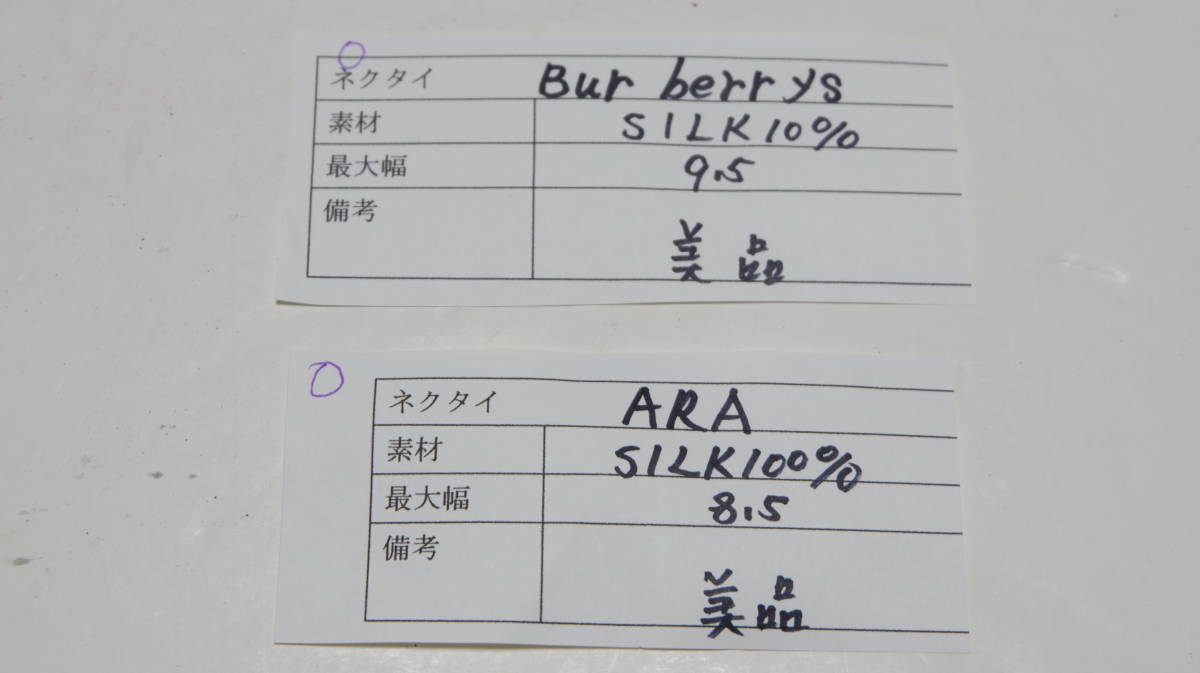 ネクタイ Burberrys
素材 SILK 10%
最大幅 9.5
備考 美品
ネクタイ ARA
素材 SILK 100%
最大幅 8.5
備考 美品